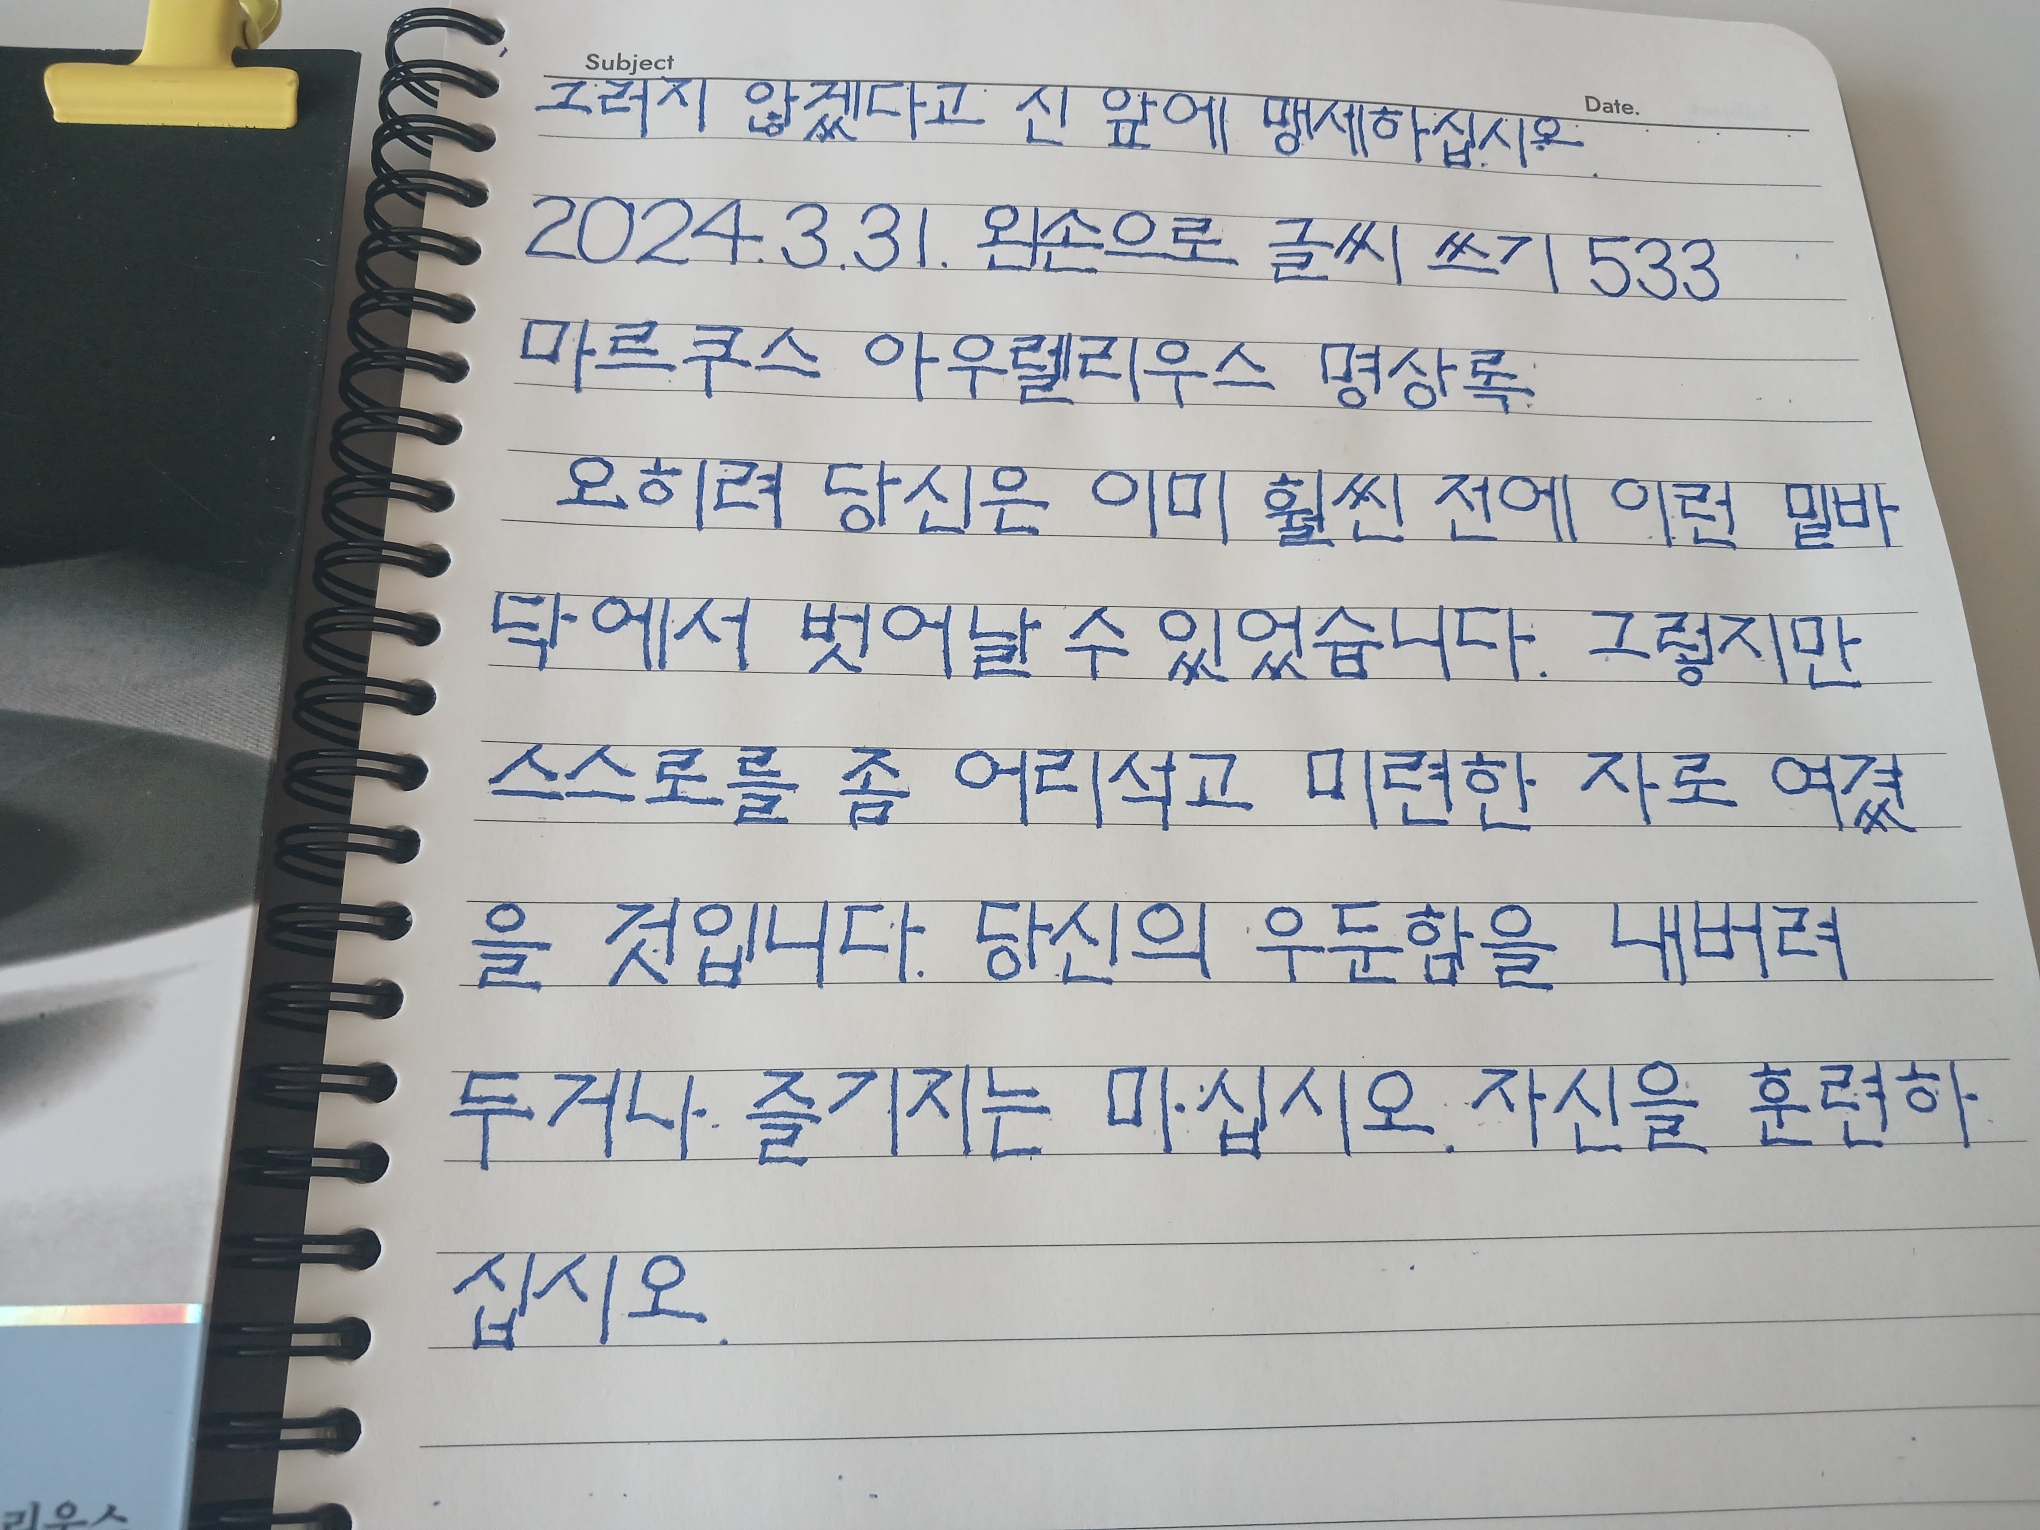 Subject
Date.
그러지 않겠다고 신 앞에 맹세하십시오.
2024.3.31. 왼손으로 글씨 쓰기 533
마르쿠스 아우렐리우스 명상록
오히려 당신은 이미 훨씬 전에 이런 밑바
닥에서 벗어날 수 있었습니다. 그렇지만
스스로를 좀 어리석고 미련한 자로 여겼
을 것입니다. 당신의 우둔함을 내버려
두거나 즐기지는 마십시오. 자신을 훈련하
십시오.
리우스